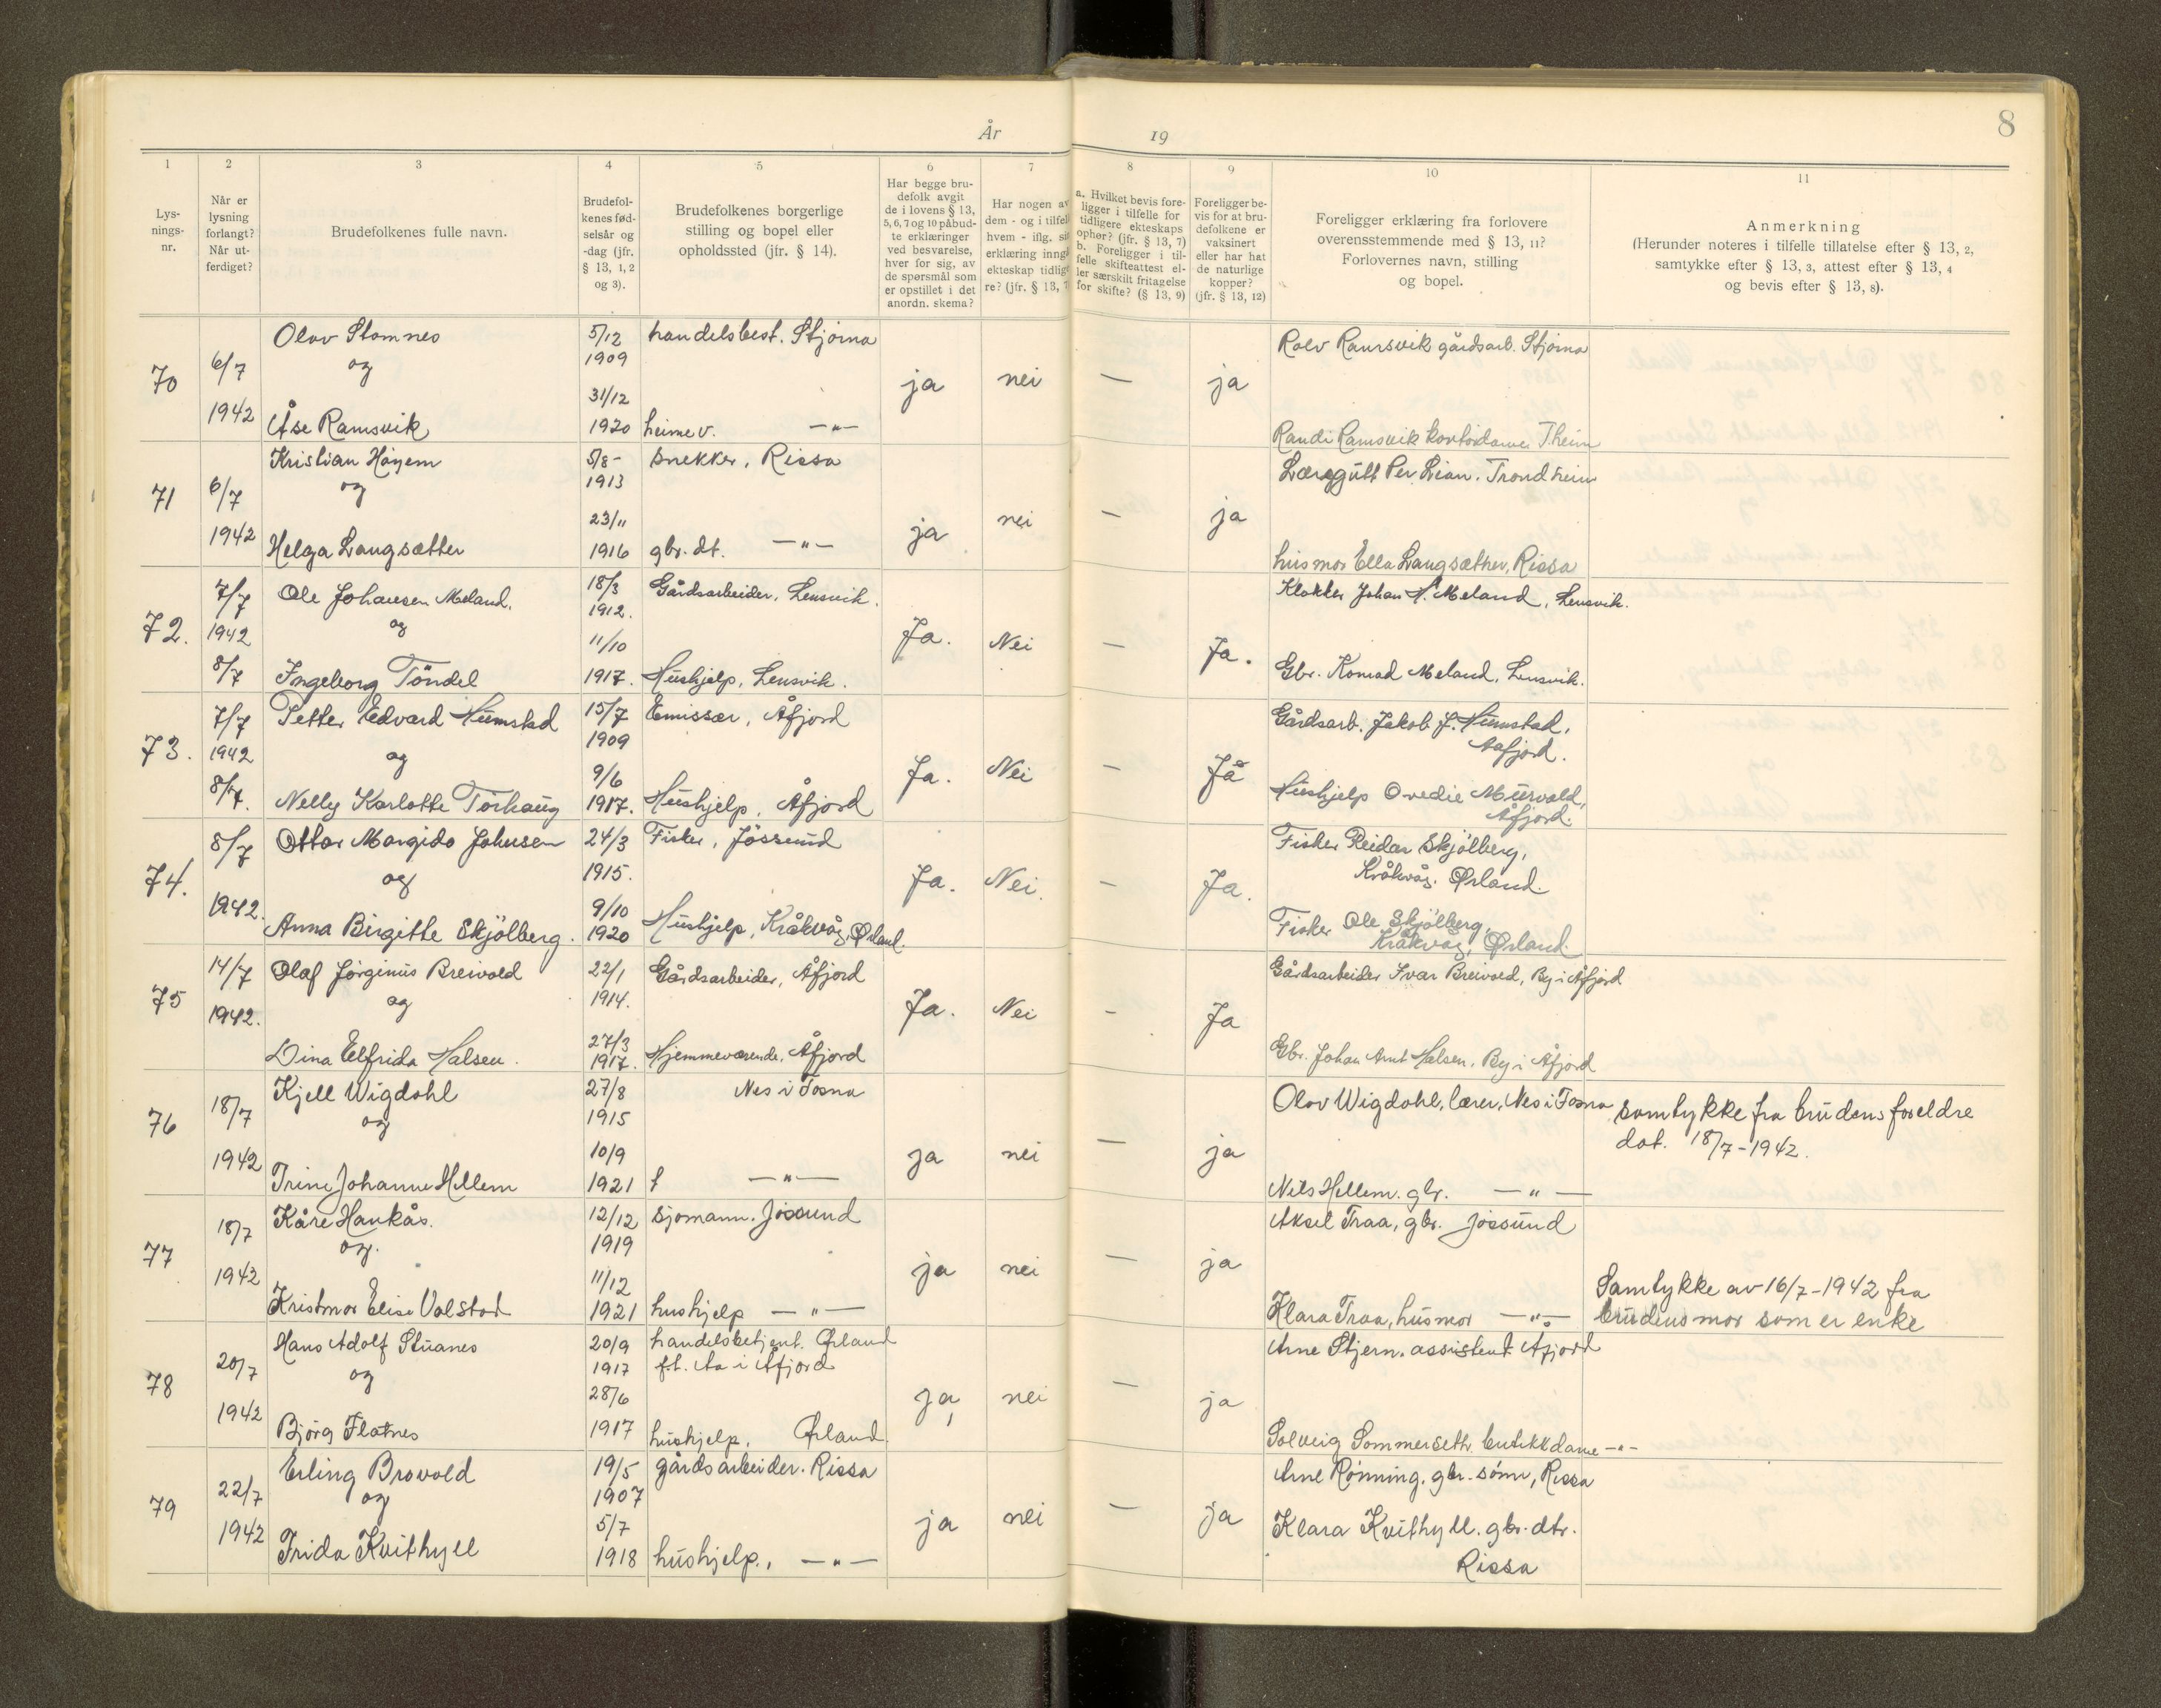 År 19
8
1 2 3 4 5 6 7 8 9 10 11
Lys-
nings-
nr.
Når er
lysning
forlangt?
Når ut-
ferdiget?
Brudefolkenes fulle navn.
Brudefol-
kenes fød-
selsår og
-dag (jfr.
§ 13, 1, 2
og 3).
Brudefolkenes borgerlige
stilling og bopel eller
opholdssted (jfr. § 14).
Har begge bru-
defolk avgit
de i lovens § 13,
5, 6, 7 og 10 påbud-
te erklæringer
ved besvarelse,
hver for sig, av
de spørsmål som
er opstillet i det
anordn. skema?
Har nogen av
dem - og i tilfel
hvem - iflg. si
erklæring inng
ekteskap tidlig
re? (jfr. § 13, 7
a. Hvilket bevis fore-
ligger i tilfelle for
tidligere ekteskaps
ophør? (jfr. § 13, 7)
b. Foreligger i til-
felle skifteattest el-
ler særskilt fritagelse
for skifte? (§ 13, 9)
Foreligger be-
vis for at bru-
defolkene er
vaksinert
eller har hat
de naturlige
kopper?
(jfr. § 13, 12)
Foreligger erklæring fra forlovere
overensstemmende med § 13, 11?
Forlovernes navn, stilling
og bopel.
Anmerkning
(Herunder noteres i tilfelle tillatelse efter § 13, 2,
samtykke efter § 13, 3, attest efter § 13, 4
og bevis efter § 13, 8).
70 6/7 1942
Olav Stamnes 5/12 1909 handelsbest. Stjørna
og
Åse Ramsvik 31/12 1920 heimev. —"—
ja nei — ja
Rolv Ramsvik gårdsarb. Stjørna
Randi Ramsvik kontordame Theim
71 6/7 1942
Kristian Høyem 5/8- 1913 snekker, Rissa
og
Helga Langsætter 23/11 1916 gbr. dt. —"—
ja nei — ja
Læregutt Per Lian. Trondheim
husmor Ella Langsæther, Rissa
72. 7/7 1942 8/7
Ole Johansen Meland. 18/3 1912. Gårdsarbeider, Lensvik.
og
Ingeborg Töndel 11/10 1917. Hushjelp, Lensvik.
Ja. Nei — Ja.
Klokker Johan H. Meland, Lensvik.
Gbr. Konrad Meland, Lensvik.
73. 7/7 1942 8/7.
Petter Edvard Humstad 15/7 1909 Emissær, Åfjord
og
Nelly Karlotte Törhaug 9/6 1917. Hushjelp, Åfjord
Ja. Nei — Ja
Gårdsarb. Jakob J. Humstad,
Aafjord.
Hushjelp Ovedie Murvold,
Åfjord.
74. 8/7 1942.
Ottar Margido Johnsen 24/3 1915. Fisker, Jössund
og
Anna Birgitte Skjölberg. 9/10 1920 Hushjelp, Kråkvåg, Ørland.
Ja. Nei. — Ja.
Fisker Reidar Skjölberg,
Kråkvåg. Ørland.
Fisker Ole Skjölberg,
Kråkvåg, Ørland.
75 14/7 1942.
Olaf Jörginus Breivold 22/1 1914. Gårdsarbeider, Åfjord
og
Dina Elfrida Halsen. 27/3 1917. Hjemmeværende, Åfjord
Ja. Nei - Ja
Gårdsarbeider Ivar Breivold, By i Åfjord
Gbr. Johan Arnt Halsen, By i Åfjord
76 18/7 1942
Kjell Wigdahl 27/8 1915 Nes i Fosna
og
Trine Johanne Hellem 10/9 1921 f —"—
ja nei — ja
Olav Wigdahl, lærer, Nes i Fosna
Nils Hellem. gbr. —"—
samtykke fra brudens foreldre
dat. 18/7-1942.
77 18/7 1942
Kåre Haukås. 12/12 1919 sjømann. Jøssund
og.
Kristmor Elise Valstad 11/12 1921 hushjelp —"—
ja nei — ja
Aksel Traa, gbr. Jøssund
Klara Traa, husmor —"—
Samtykke av 16/7-1942 fra
brudens mor som er enke
78 20/7 1942
Hans Adolf Stuanes 20/9 1917 handelsbetjent. Ørland
ft. Aa i Åfjord
og
Bjørg Flatnes 28/6 1917 hushjelp, Ørland
ja, nei — ja
Arne Stjern. assistent Åfjord
Solveig Sommerseth. butikkdame -"-
79 22/7 1942
Erling Brovold 19/5 1907 gårdsarbeider. Rissa
og
Frida Kvithyll 5/7 1918 hushjelp., —"—
ja nei — ja
Arne Rønning. gbr. sønn, Rissa
Klara Kvithyll. gbr. dtr.
Rissa